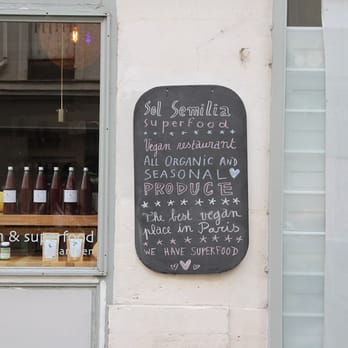 Sol Semilla
superfood
Vegan restaurant
ALL ORGANIC AND
SEASONAL
PRODUCE
The best vegan
place in Paris
WE HAVE SUPERFOOD
& superfood